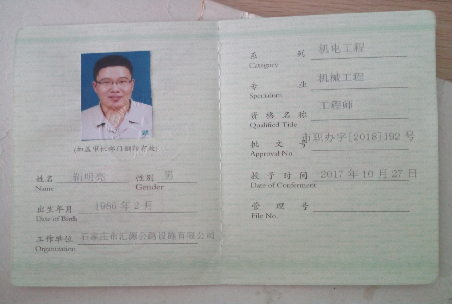 (加盖审批部门钢印有效)
姓名 靳明亮 性别 男
Name Gender
出生年月 1986年2月
Date of Birth
工作单位 石家庄市汇源公路设施有限公司
Organization
系列 机电工程
Category
专业 机械工程
Specialism
资格名称 工程师
Qualified Title
批文号 市职办字[2018]192号
Approval No.
授予时间 2017年10月27日
Date of Conferment
管理号
File No.